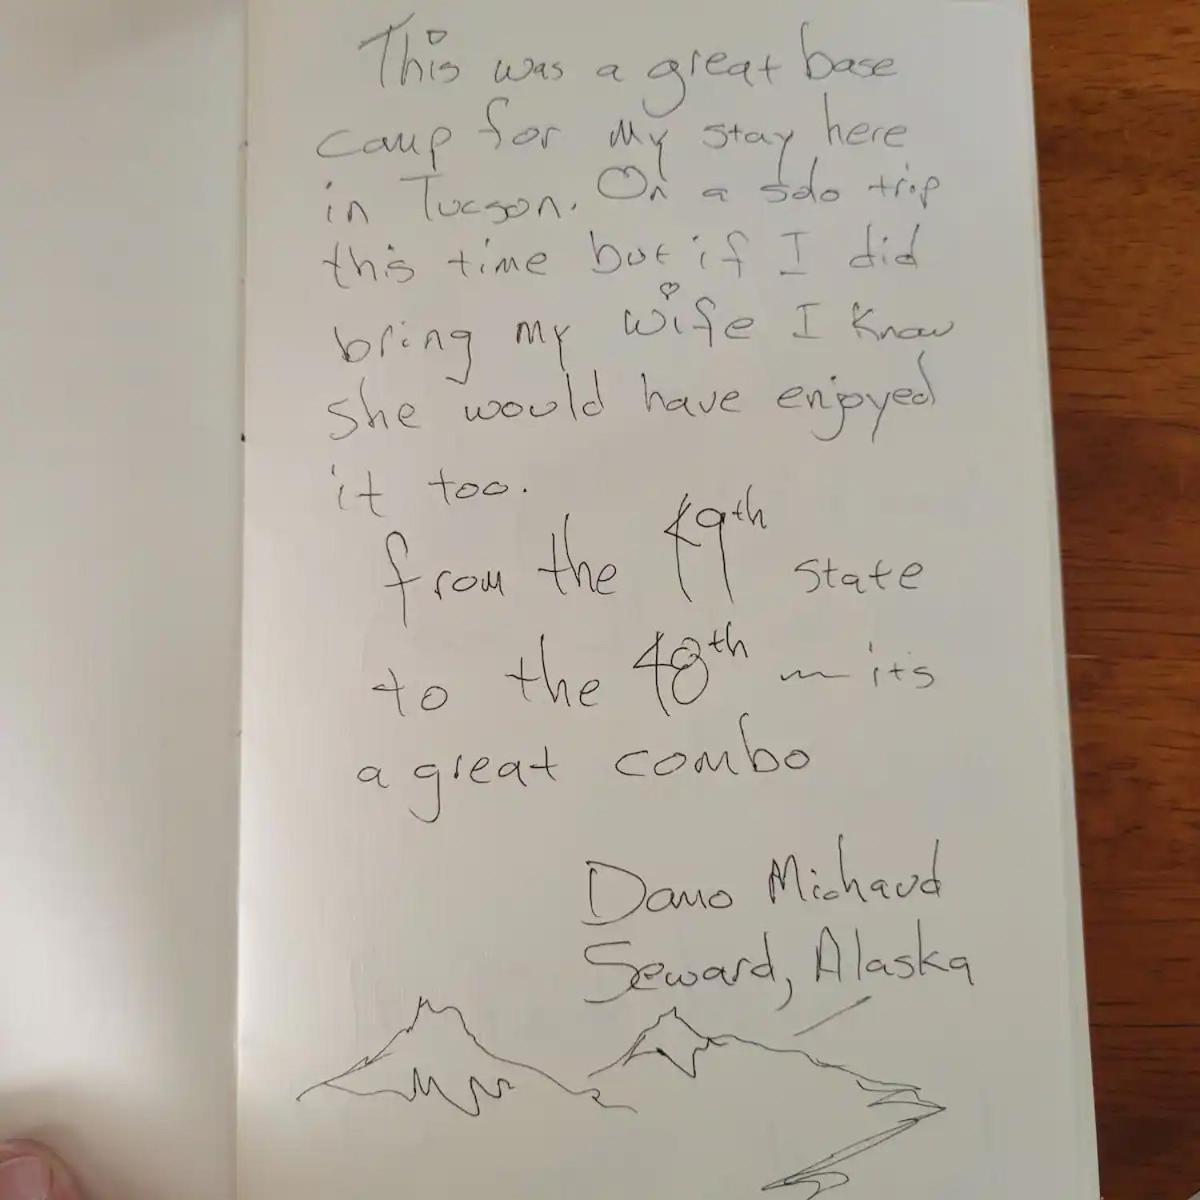 This was a great base
camp for my stay here
in Tucson. On a solo trip
this time but if I did
bring my wife I know
she would have enjoyed
it too.
from the 49th state
to the 48th — its
a great combo
Dano Michaud
Seward, Alaska